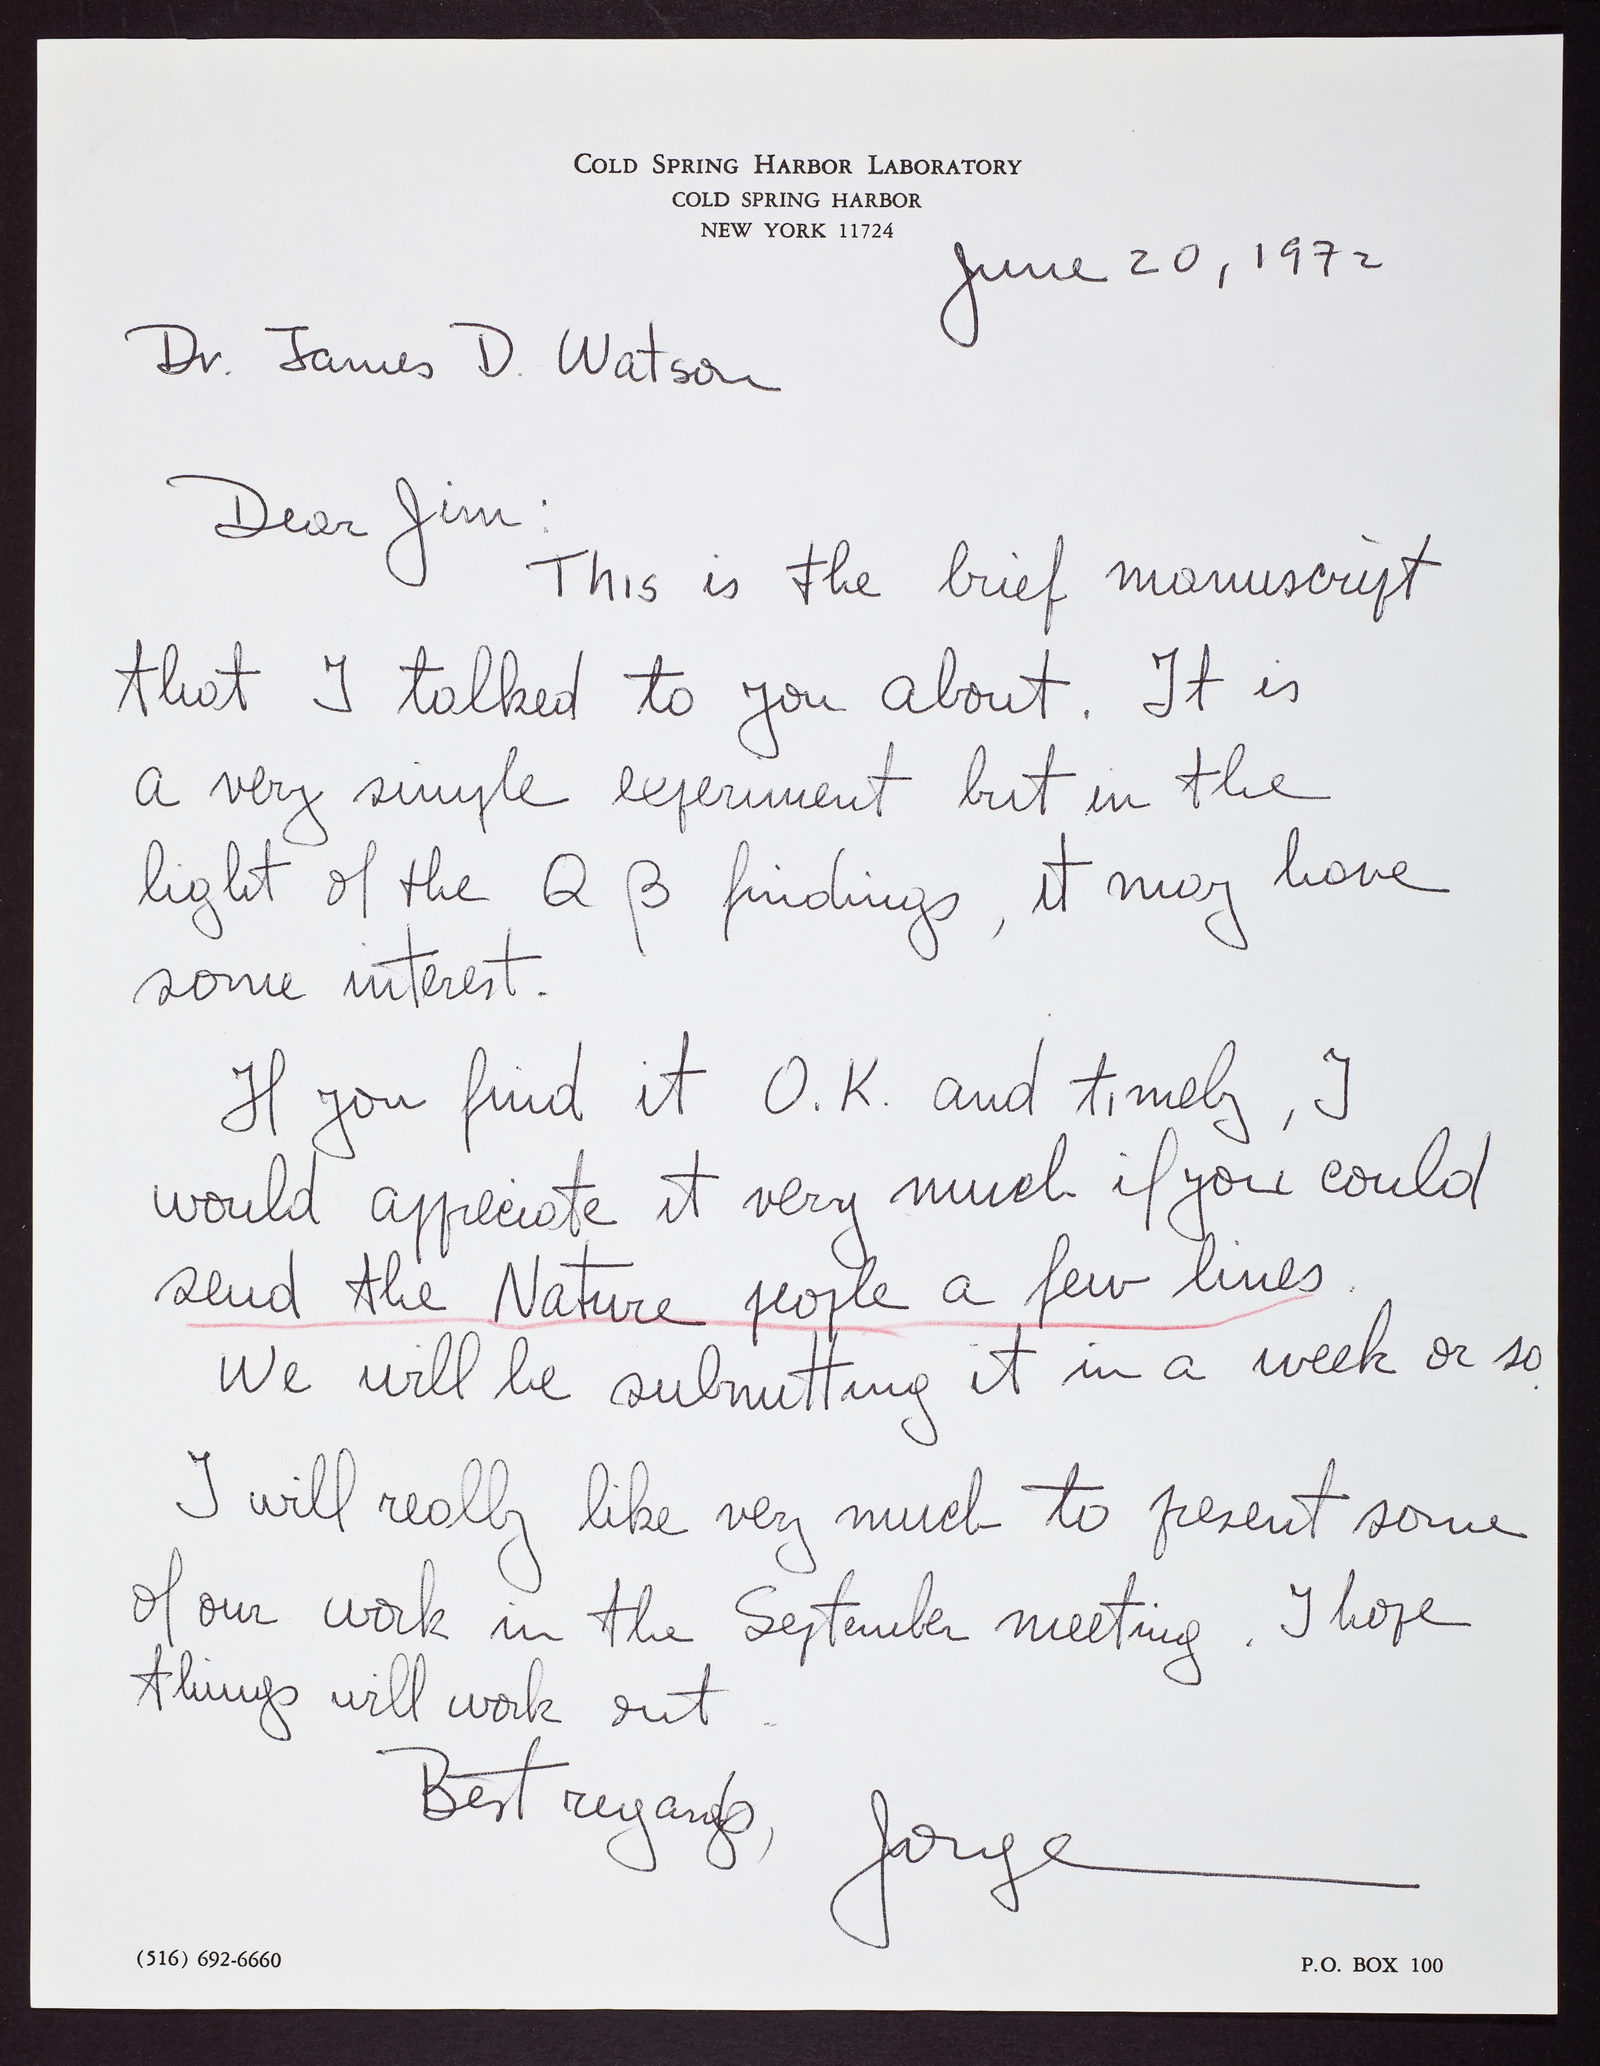 COLD SPRING HARBOR LABORATORY
COLD SPRING HARBOR
NEW YORK 11724
June 20, 1972
Dr. James D. Watson
Dear Jim:
This is the brief manuscript
that I talked to you about. It is
a very simple experiment but in the
light of the Q β findings, it may have
some interest.
If you find it O.K. and timely, I
would appreciate it very much if you could
send the Nature people a few lines.
We will be submitting it in a week or so.
I will really like very much to present some
of our work in the September meeting. I hope
things will work out.
Best regards, Jorge
(516) 692-6660 P.O. BOX 100